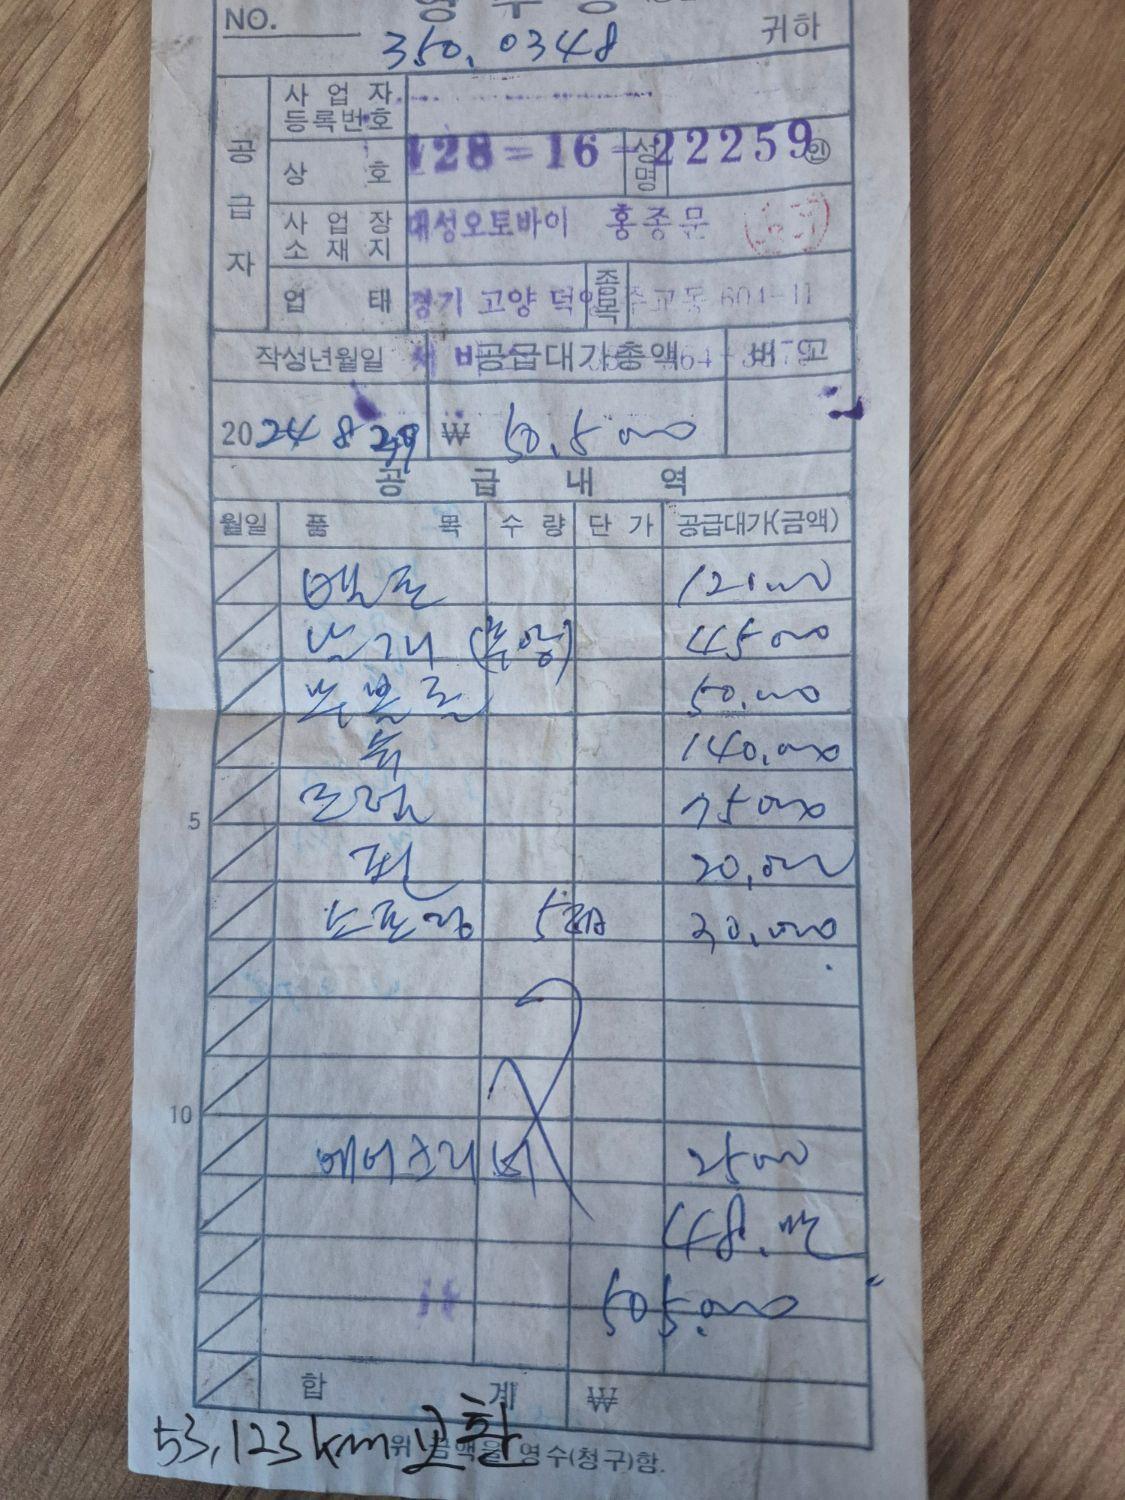 영 수 증
NO.
350.0348 귀하
공급자
사업자등록번호
128-16-22259
상 호 성명 인
사업장소재지 대성오토바이 홍종문
업 태 경기 고양 덕양 종목 주교동 604-11
작성년월일 공급대가총액 비 고
2024 8 29 ₩ 50.5000
공 급 내 역
월일 품 목 수 량 단 가 공급대가(금액)
벨트 121000
45000
50.000
축 140.000
5 75000
핀 20,000
스프링 5 20,000
10
에어크리너 25000
48.만
505.000
합 계 ₩
위 금액을 영수(청구)함.
53,123km 교환